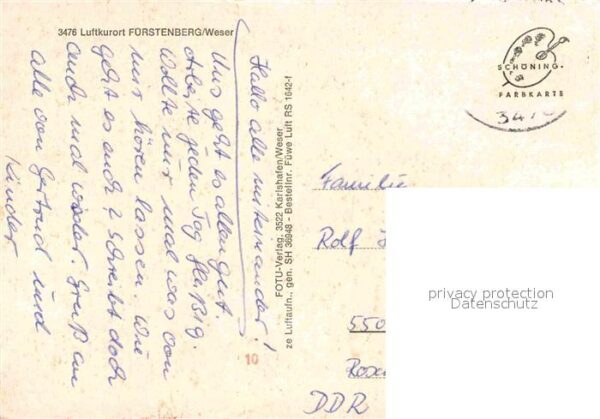 3476 Luftkurort FÜRSTENBERG/Weser
Hallo alle miteinander!
Uns geht es allen gut.
Arbeite jeden Tag fleißig.
Wollte nur mal was von
mir hören lassen. Wie
geht es euch? Schreibt doch
auch mal wieder. Gruß an
alle von Gertrud und
Kinder
FOTU-Verlag, 3522 Karlshafen/Weser
ze Luftaufn., gen. SH 36948 - Bestellnr. Füwe Luft RS 1642-f
10
SCHÖNING-
FARBKARTE
3476
Familie
Rolf
550
DDR
privacy protection
Datenschutz